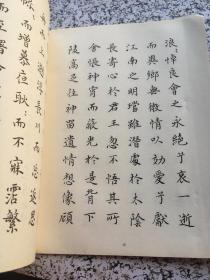 浪〻悼良會之永絕兮哀一逝
而異鄉無微情以効愛兮獻
江南之明璫雖潛處於太陰
長寄心於君王忽不悟其所
舍悵神宵而蔽光於是背下
陵高足往神留遺情想像顧
上溯浮長川而忘返思
而增慕夜耿〻而不寐霑繁